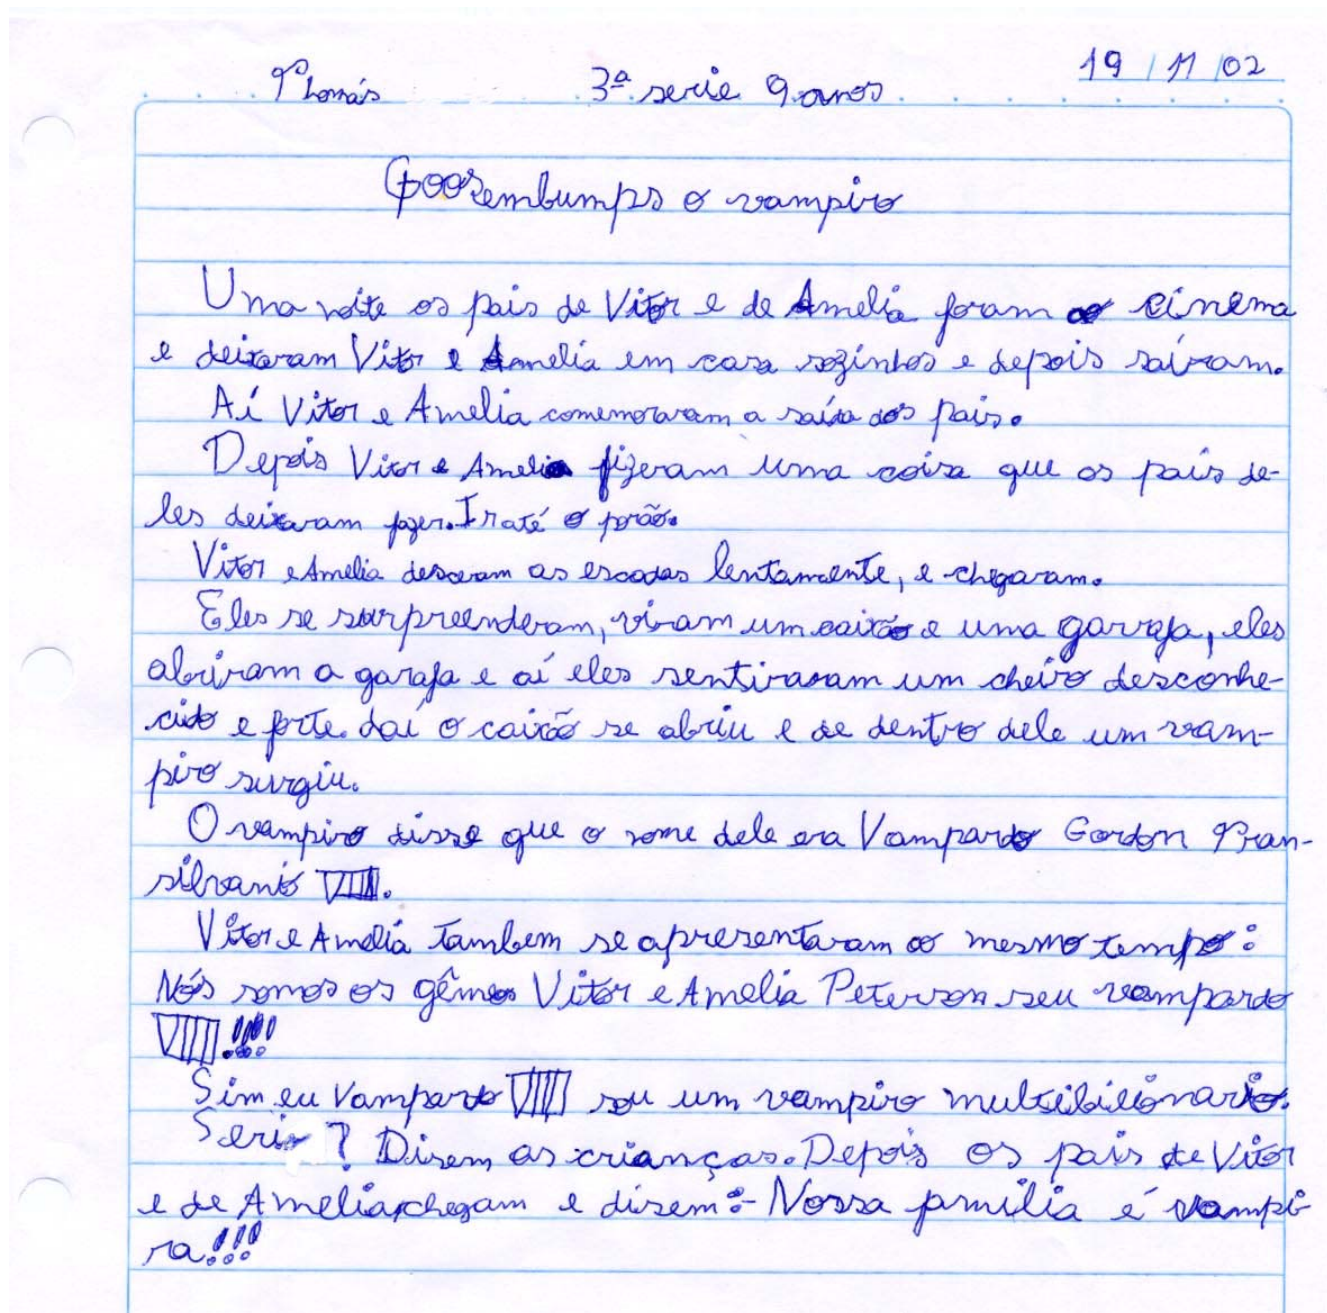 Thomás 3ª serie 9 anos 19/11/02
Goosembumps o vampiro
Uma noite os pais de Vitor e de Amelia foram ao cinema
e deixaram Vitor e Amelia em casa sozinhos e depois saíram.
Aí Vitor e Amelia comemoraram a saida dos pais.
Depois Vitor e Amelia fizeram uma coisa que os pais de-
les deixaram fazer. Ir até o porão.
Vitor e Amelia desceram as escadas lentamente, e chegaram.
Eles se surpreenderam, viram um caixão e uma garafa, eles
abriram a garafa e aí eles sentiraram um cheiro desconhe-
cido e forte. daí o caixão se abriu e de dentro dele um vam-
piro surgiu.
O vampiro disse que o nome dele era Vampardo Gordon Tran-
silvanio VIIII.
Vitor e Amelia tambem se apresentaram ao mesmo tempo:
Nós somos os gêmeos Vitor e Amelia Peterson seu vampardo
VIIII!!!!
Sim eu Vampardo VIIII sou um vampiro multibilionario.
Serio? Disem as crianças. Depois os pais de Vitor
e de Amelia chegam e disem:- Nossa familia é vampi-
ra!!!